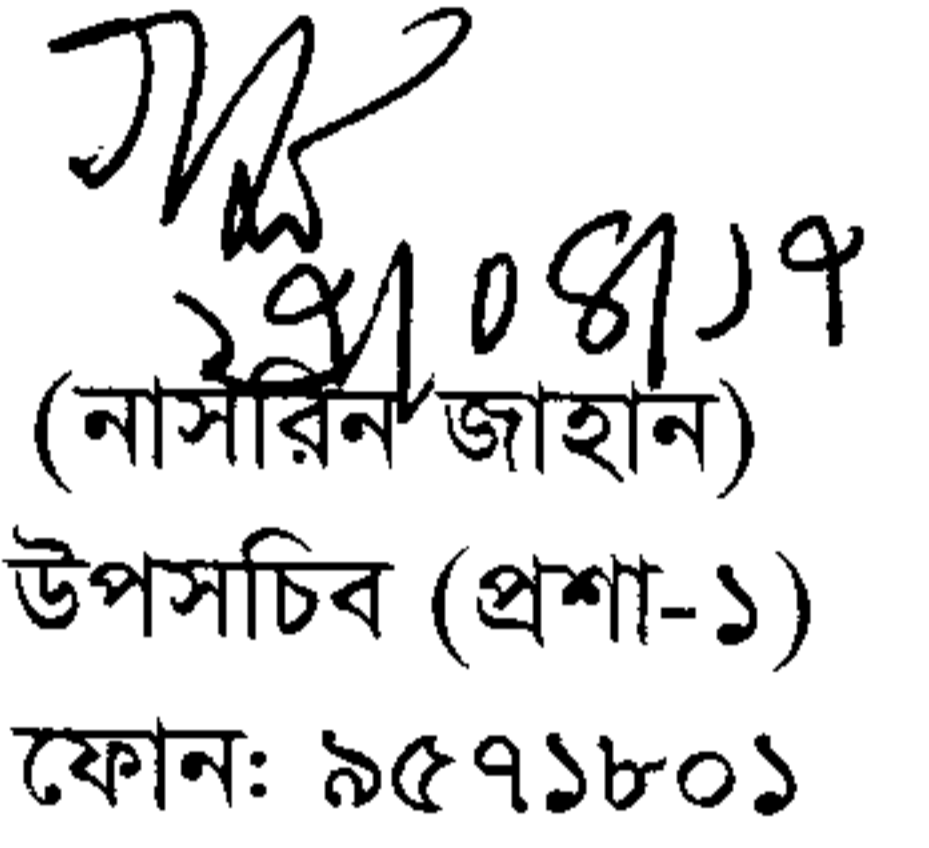 ২৭/০৪/১৭
(নাসরিন জাহান)
উপসচিব (প্রশা-১)
ফোন: ৯৫৭১৮০১